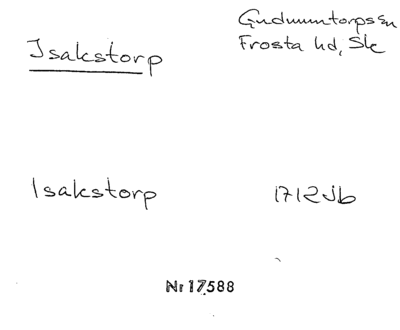 Gudmuntorps sn
Isakstorp Frosta hd, Sk
Isakstorp 1712 Jb
Nr 17588